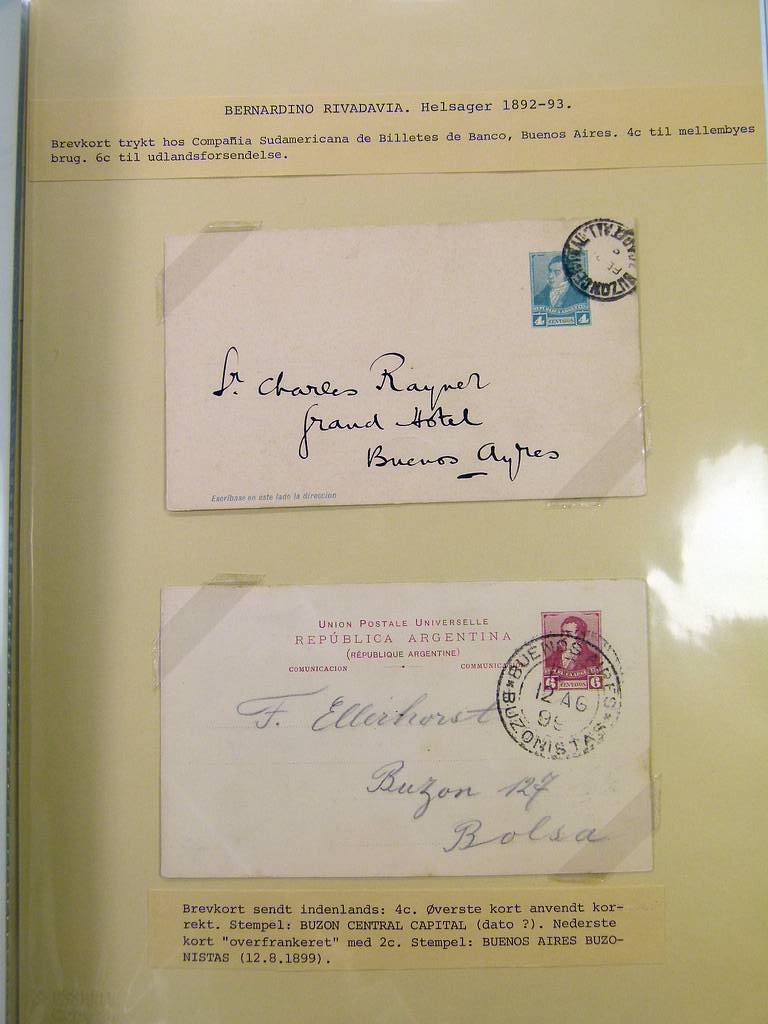 BERNARDINO RIVADAVIA. Helsager 1892-93.
Brevkort trykt hos Compañia Sudamericana de Billetes de Banco, Buenos Aires. 4c til mellembyes
brug. 6c til udlandsforsendelse.
BUZON CENTRAL
4 CENTAVOS 4
Sr. Charles Rayner
Grand Hotel
Buenos Ayres
Escríbase en este lado la direccion
UNION POSTALE UNIVERSELLE
REPÚBLICA ARGENTINA
(RÉPUBLIQUE ARGENTINE)
COMUNICACION
6 CENTAVOS 6
BUENOS AIRES
12 AG
99
BUZONISTAS
F. Ellerhorst
Buzon 127
Bolsa
Brevkort sendt indenlands: 4c. Øverste kort anvendt kor-
rekt. Stempel: BUZON CENTRAL CAPITAL (dato ?). Nederste
kort "overfrankeret" med 2c. Stempel: BUENOS AIRES BUZO-
NISTAS (12.8.1899).